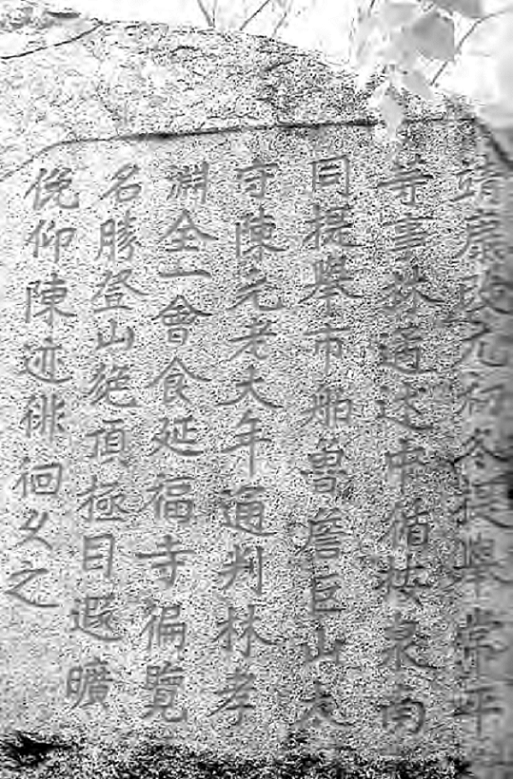 靖康改元初冬提舉常平
等事林遹述中循按泉南
同提舉市舶魯詹巨山太
守陳元老大年通判林孝
淵全一會食延福寺徧覽
名勝登山絶頂極目遐曠
俛仰陳迹徘徊久之